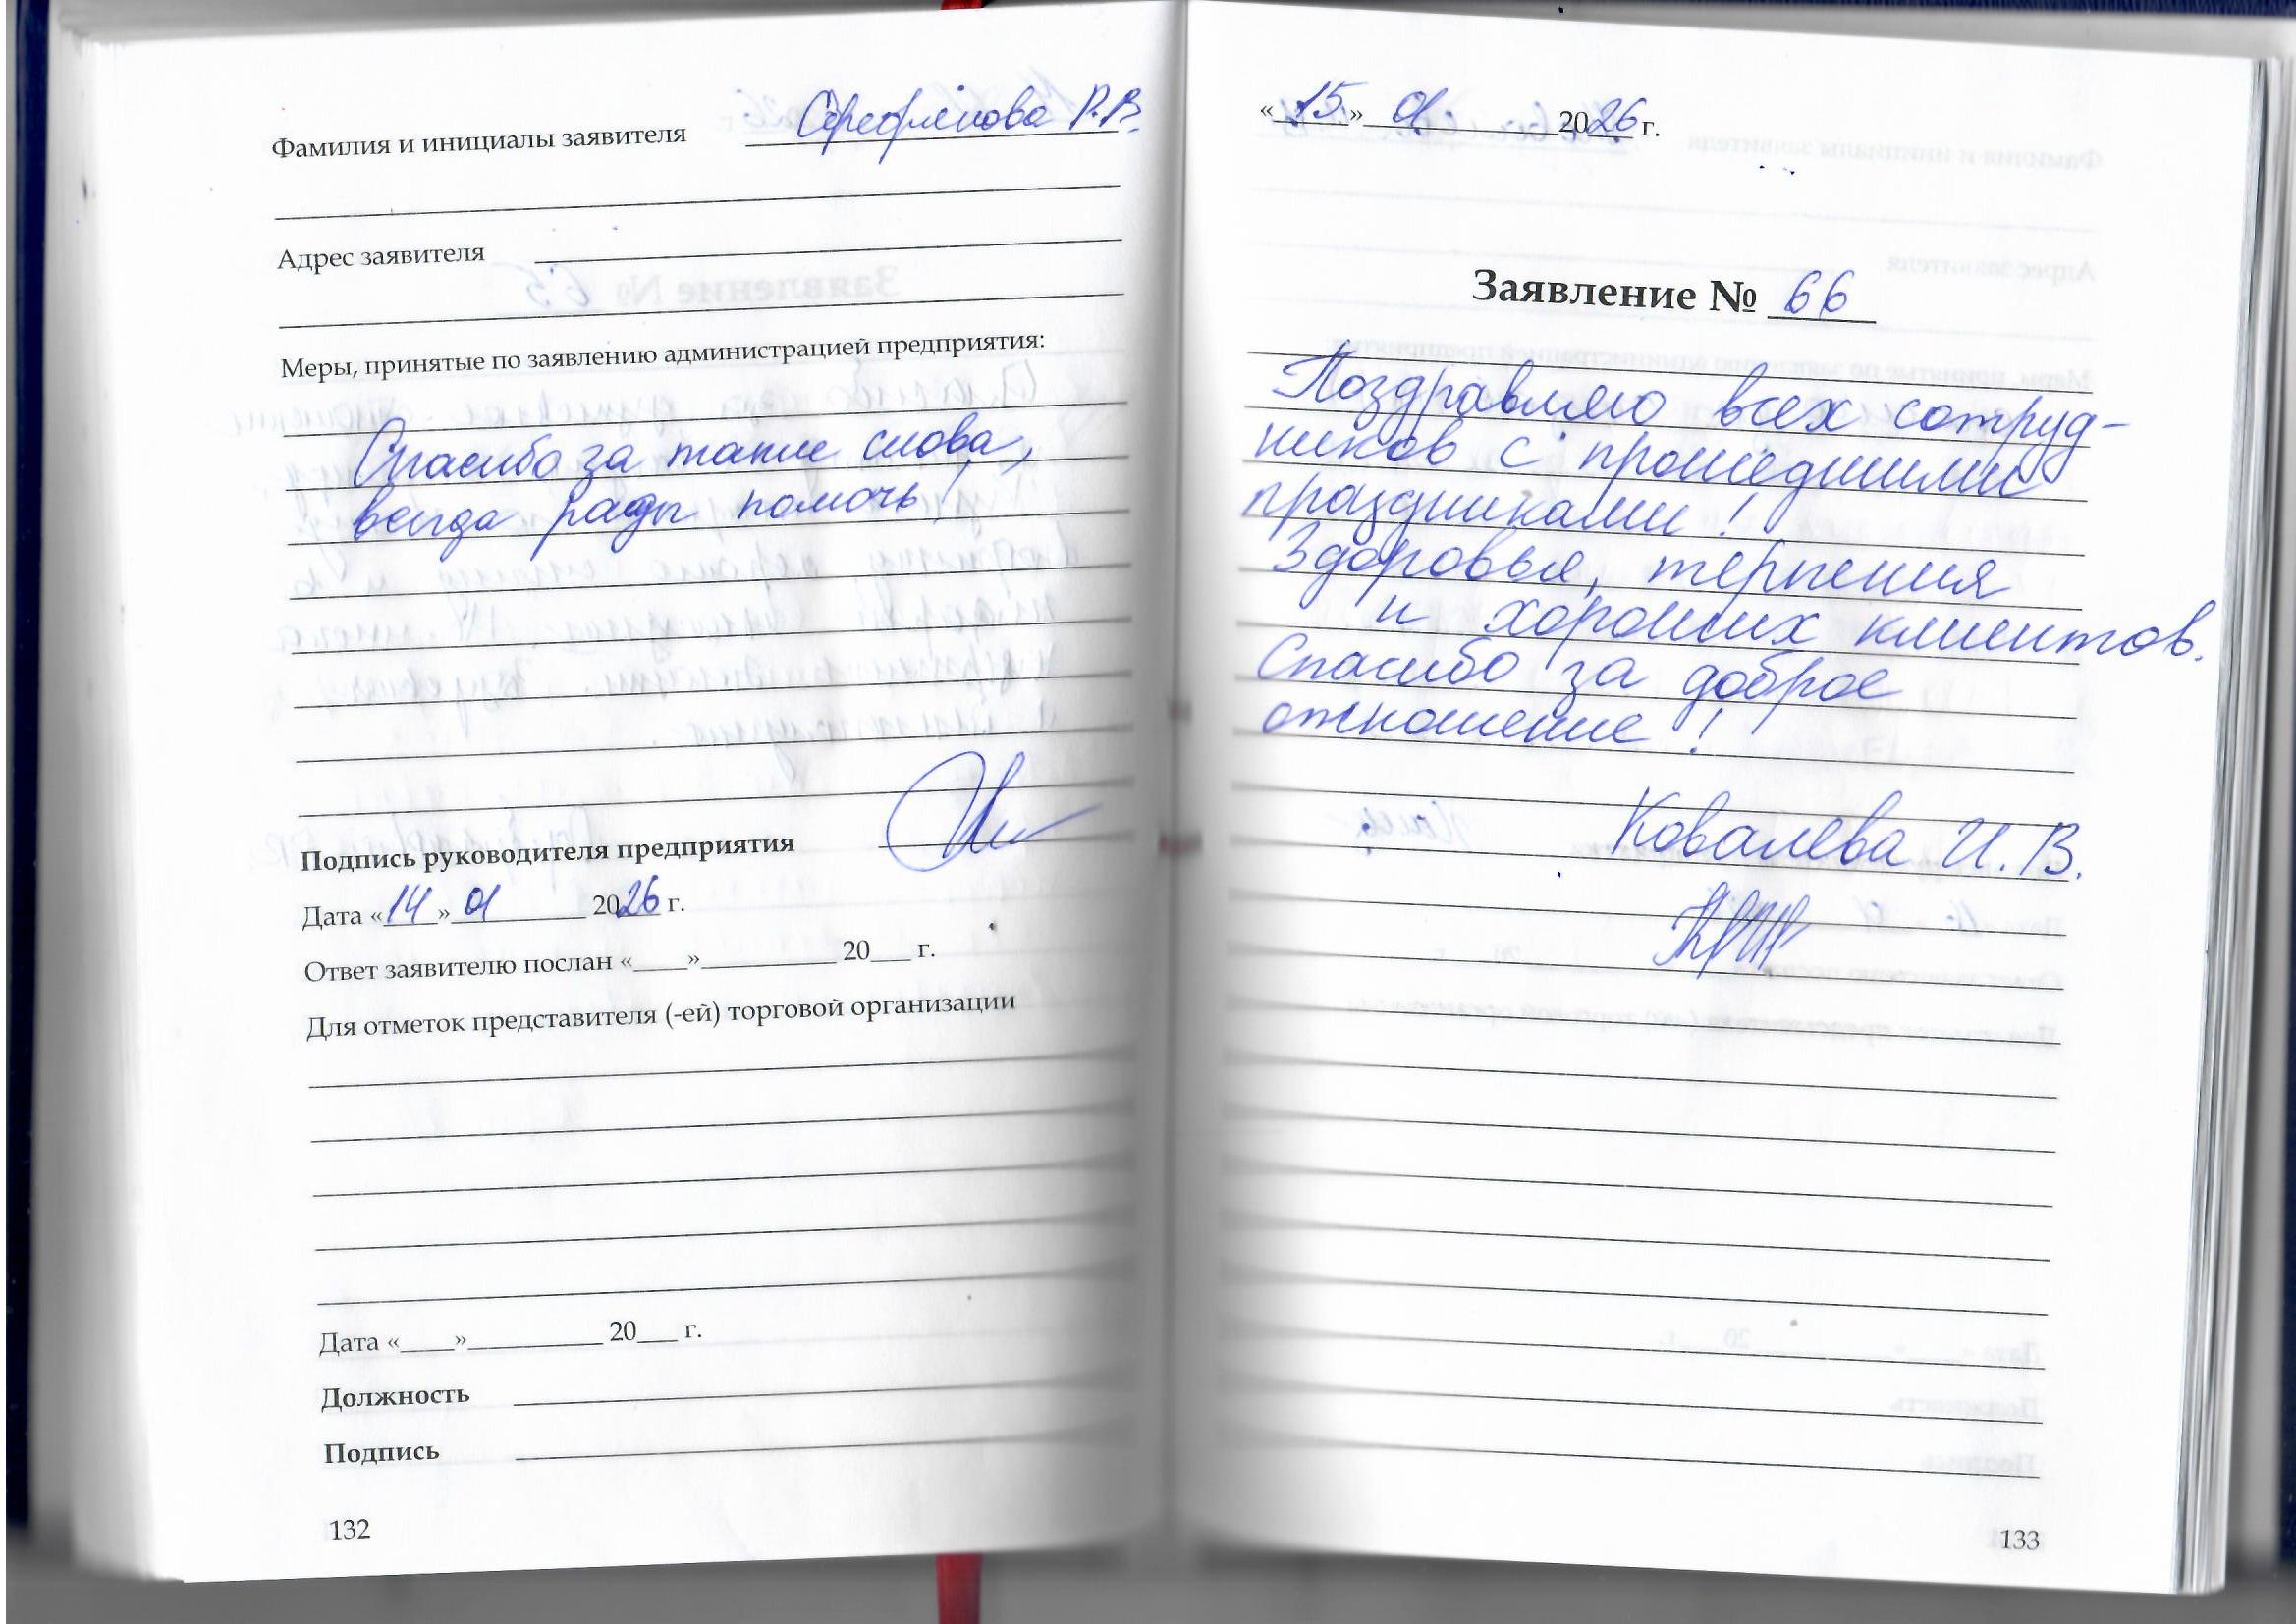 Фамилия и инициалы заявителя Р.В.
Адрес заявителя
Меры, принятые по заявлению администрацией предприятия:
Спасибо за такие слова,
всегда рады помочь!
Подпись руководителя предприятия
Дата «14» 01 2026 г.
Ответ заявителю послан «____»__________ 20___ г.
Для отметок представителя (-ей) торговой организации
Дата «____»__________ 20___ г.
Должность
Подпись
132
«15» 01 2026 г.
Заявление № 66
Поздравляю всех сотруд-
ников с прошедшими
праздниками!
Здоровья, терпения
и хороших клиентов.
Спасибо за доброе
отношение!
Ковалева И.В.
133